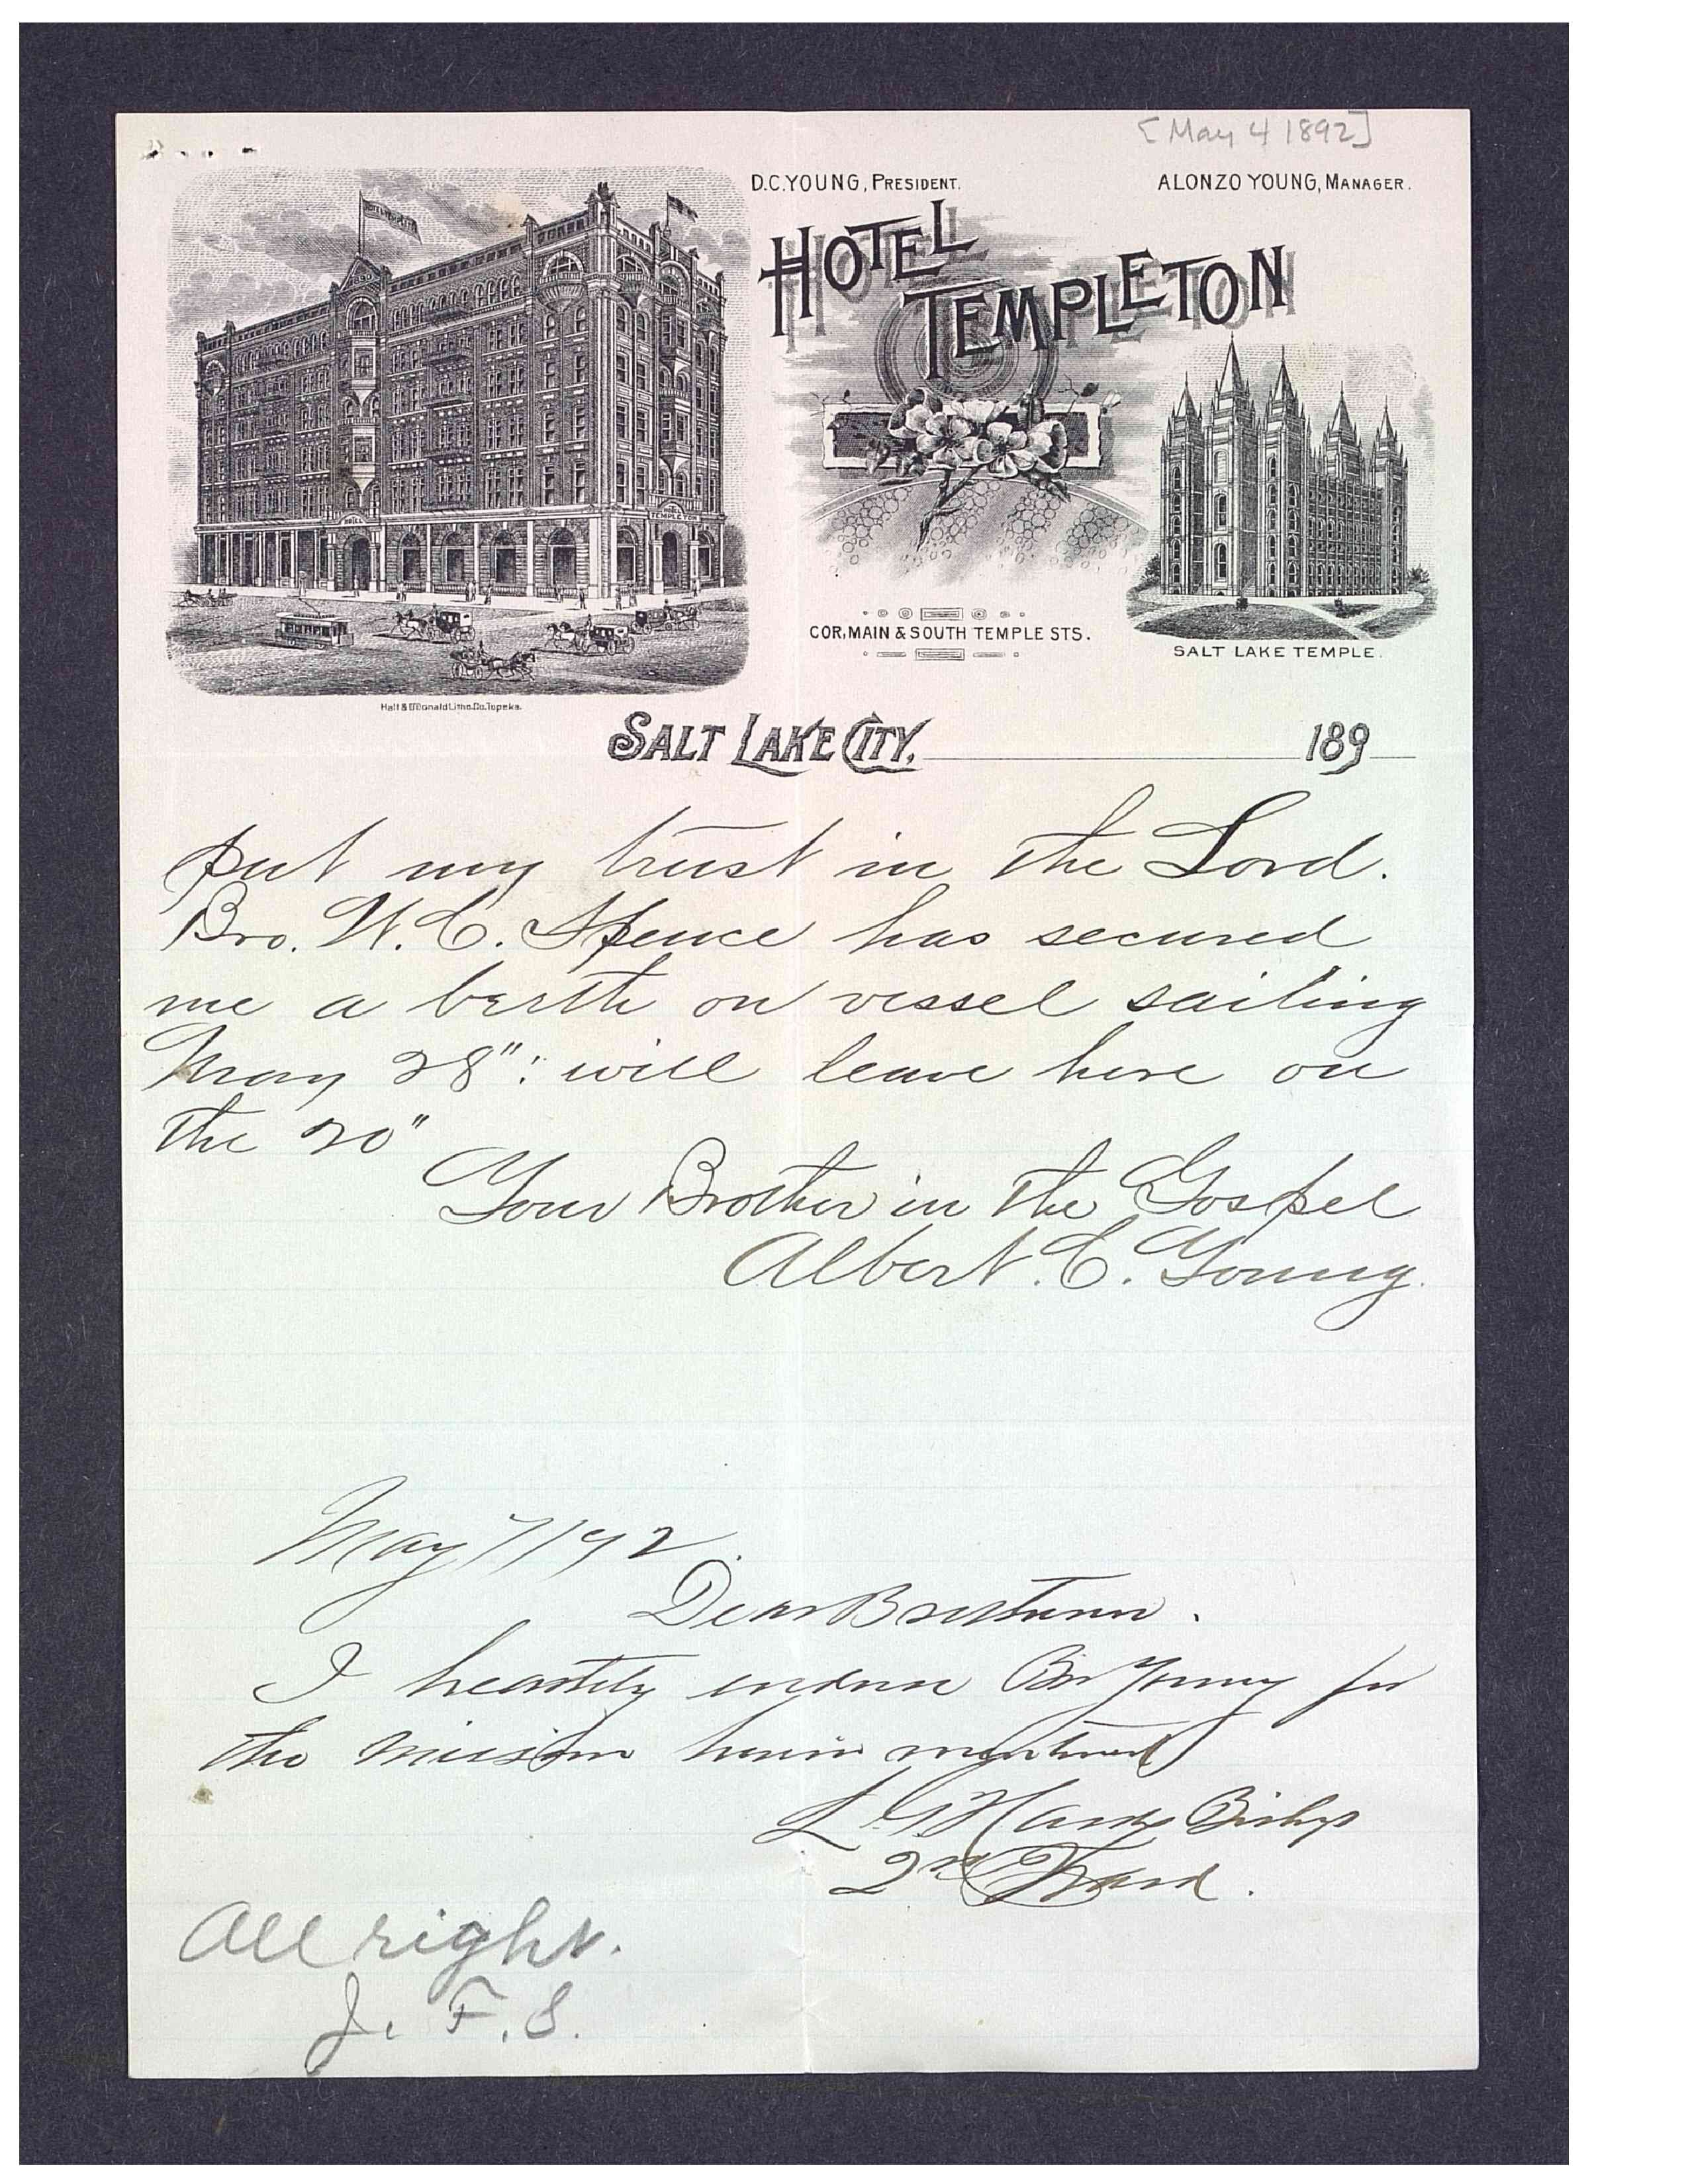 [May 4 1892]
D.C. YOUNG, PRESIDENT.
ALONZO YOUNG, MANAGER.
HOTEL
TEMPLETON
COR, MAIN & SOUTH TEMPLE STS.
SALT LAKE TEMPLE.
Hall & O'Donald Litho. Co. Topeka.
SALT LAKE CITY, 189
put my trust in the Lord.
Bro. W. C. Spence has secured
me a berth on vessel sailing
May 28": will leave here on
the 20"
Your Brother in the Gospel
Albert. C. Young.
May 7/92.
Dear Brethren.
I heartily endorse Bro Young for
the mission herein mentioned
L G Hardy Bishop
2nd Ward.
All right.
J. F. S.